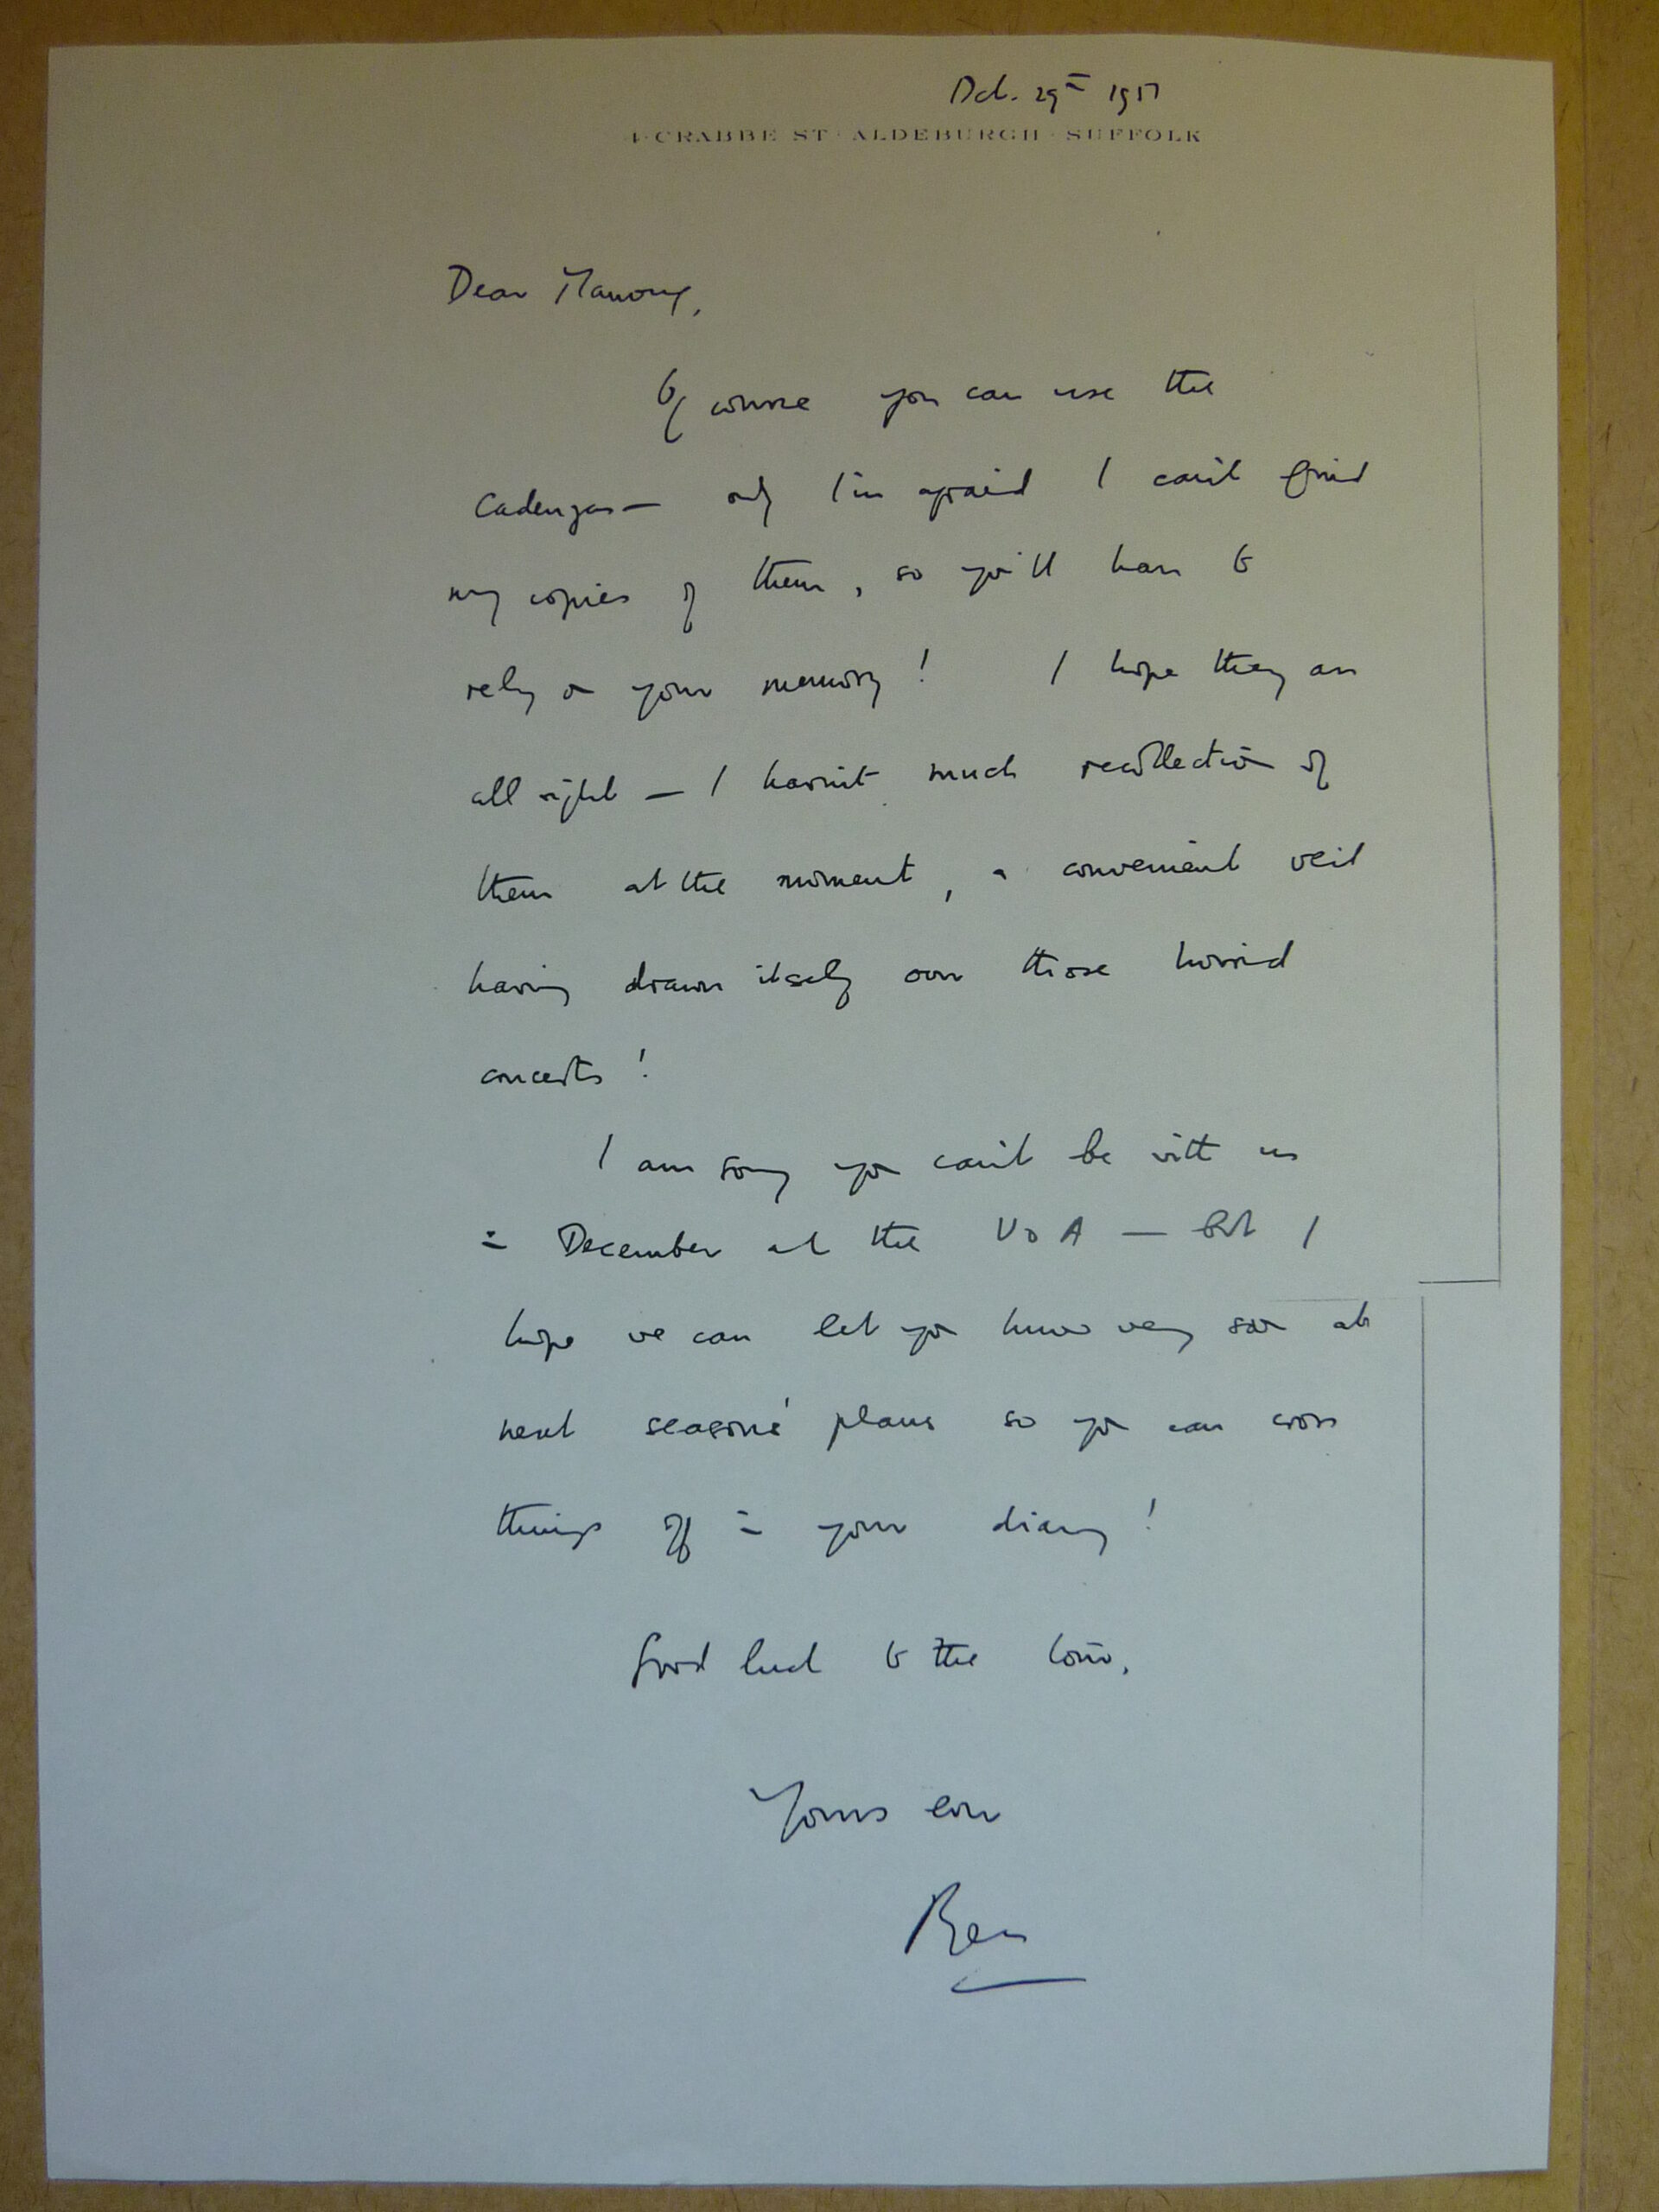 Oct. 29th 1957
4·CRABBE ST·ALDEBURGH·SUFFOLK
Dear
Of course you can use the
Cadenzas — only I'm afraid I can't find
my copies of them, so you'll have to
rely on your memory! I hope they are
all right — I haven't much recollection of
them at the moment, a convenient veil
having drawn itself over those horrid
concerts!
I am sorry you can't be with us
in December at the V & A — But I
hope we can let you know very soon abt
next seasons' plans so you can cross
things off in your diary!
Good luck to the
Yours ever
Ben